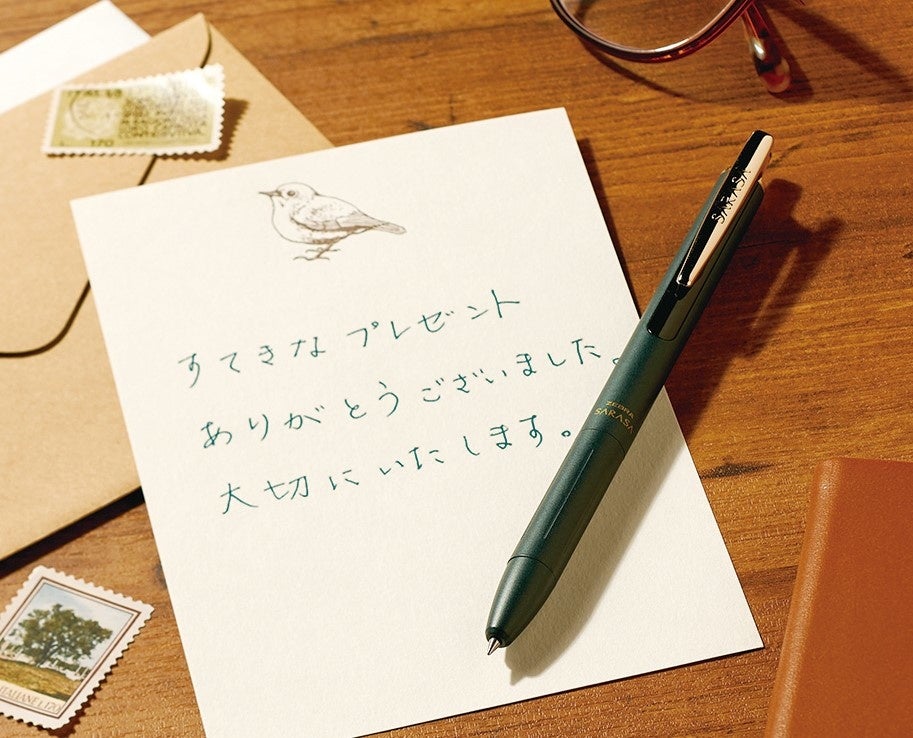 すてきな プレゼント
ありがとうございました。
大切にいたします。
SARASA
ZEBRA
SARASA
170